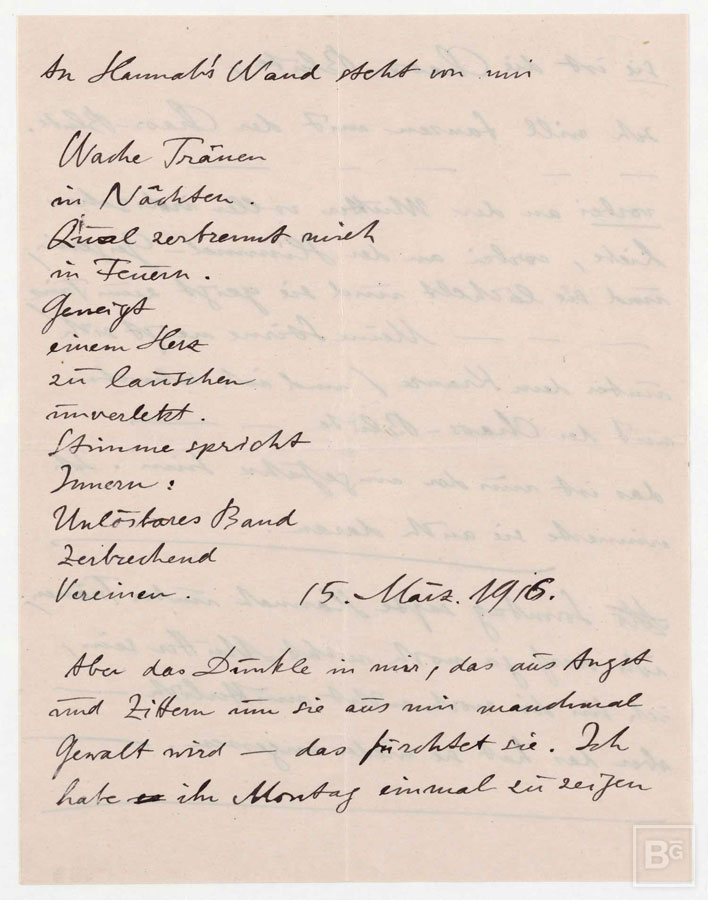 An Hannah's Wand steht von mir
Wache Tränen
in Nächten.
Qual zertrennt mich
in Feuern.
Geneigt
einem Herz
zu lauschen
unverletzt.
Stimme spricht
Innern:
Unlösbares Band
Zerbrechend
Vereinen. 15. März. 1916.
Aber das Dunkle in mir, das aus Angst
und Zittern um sie aus mir manchmal
Gewalt wird — das fürchtet sie. Ich
habe ihr Montag einmal zu zeigen
BG